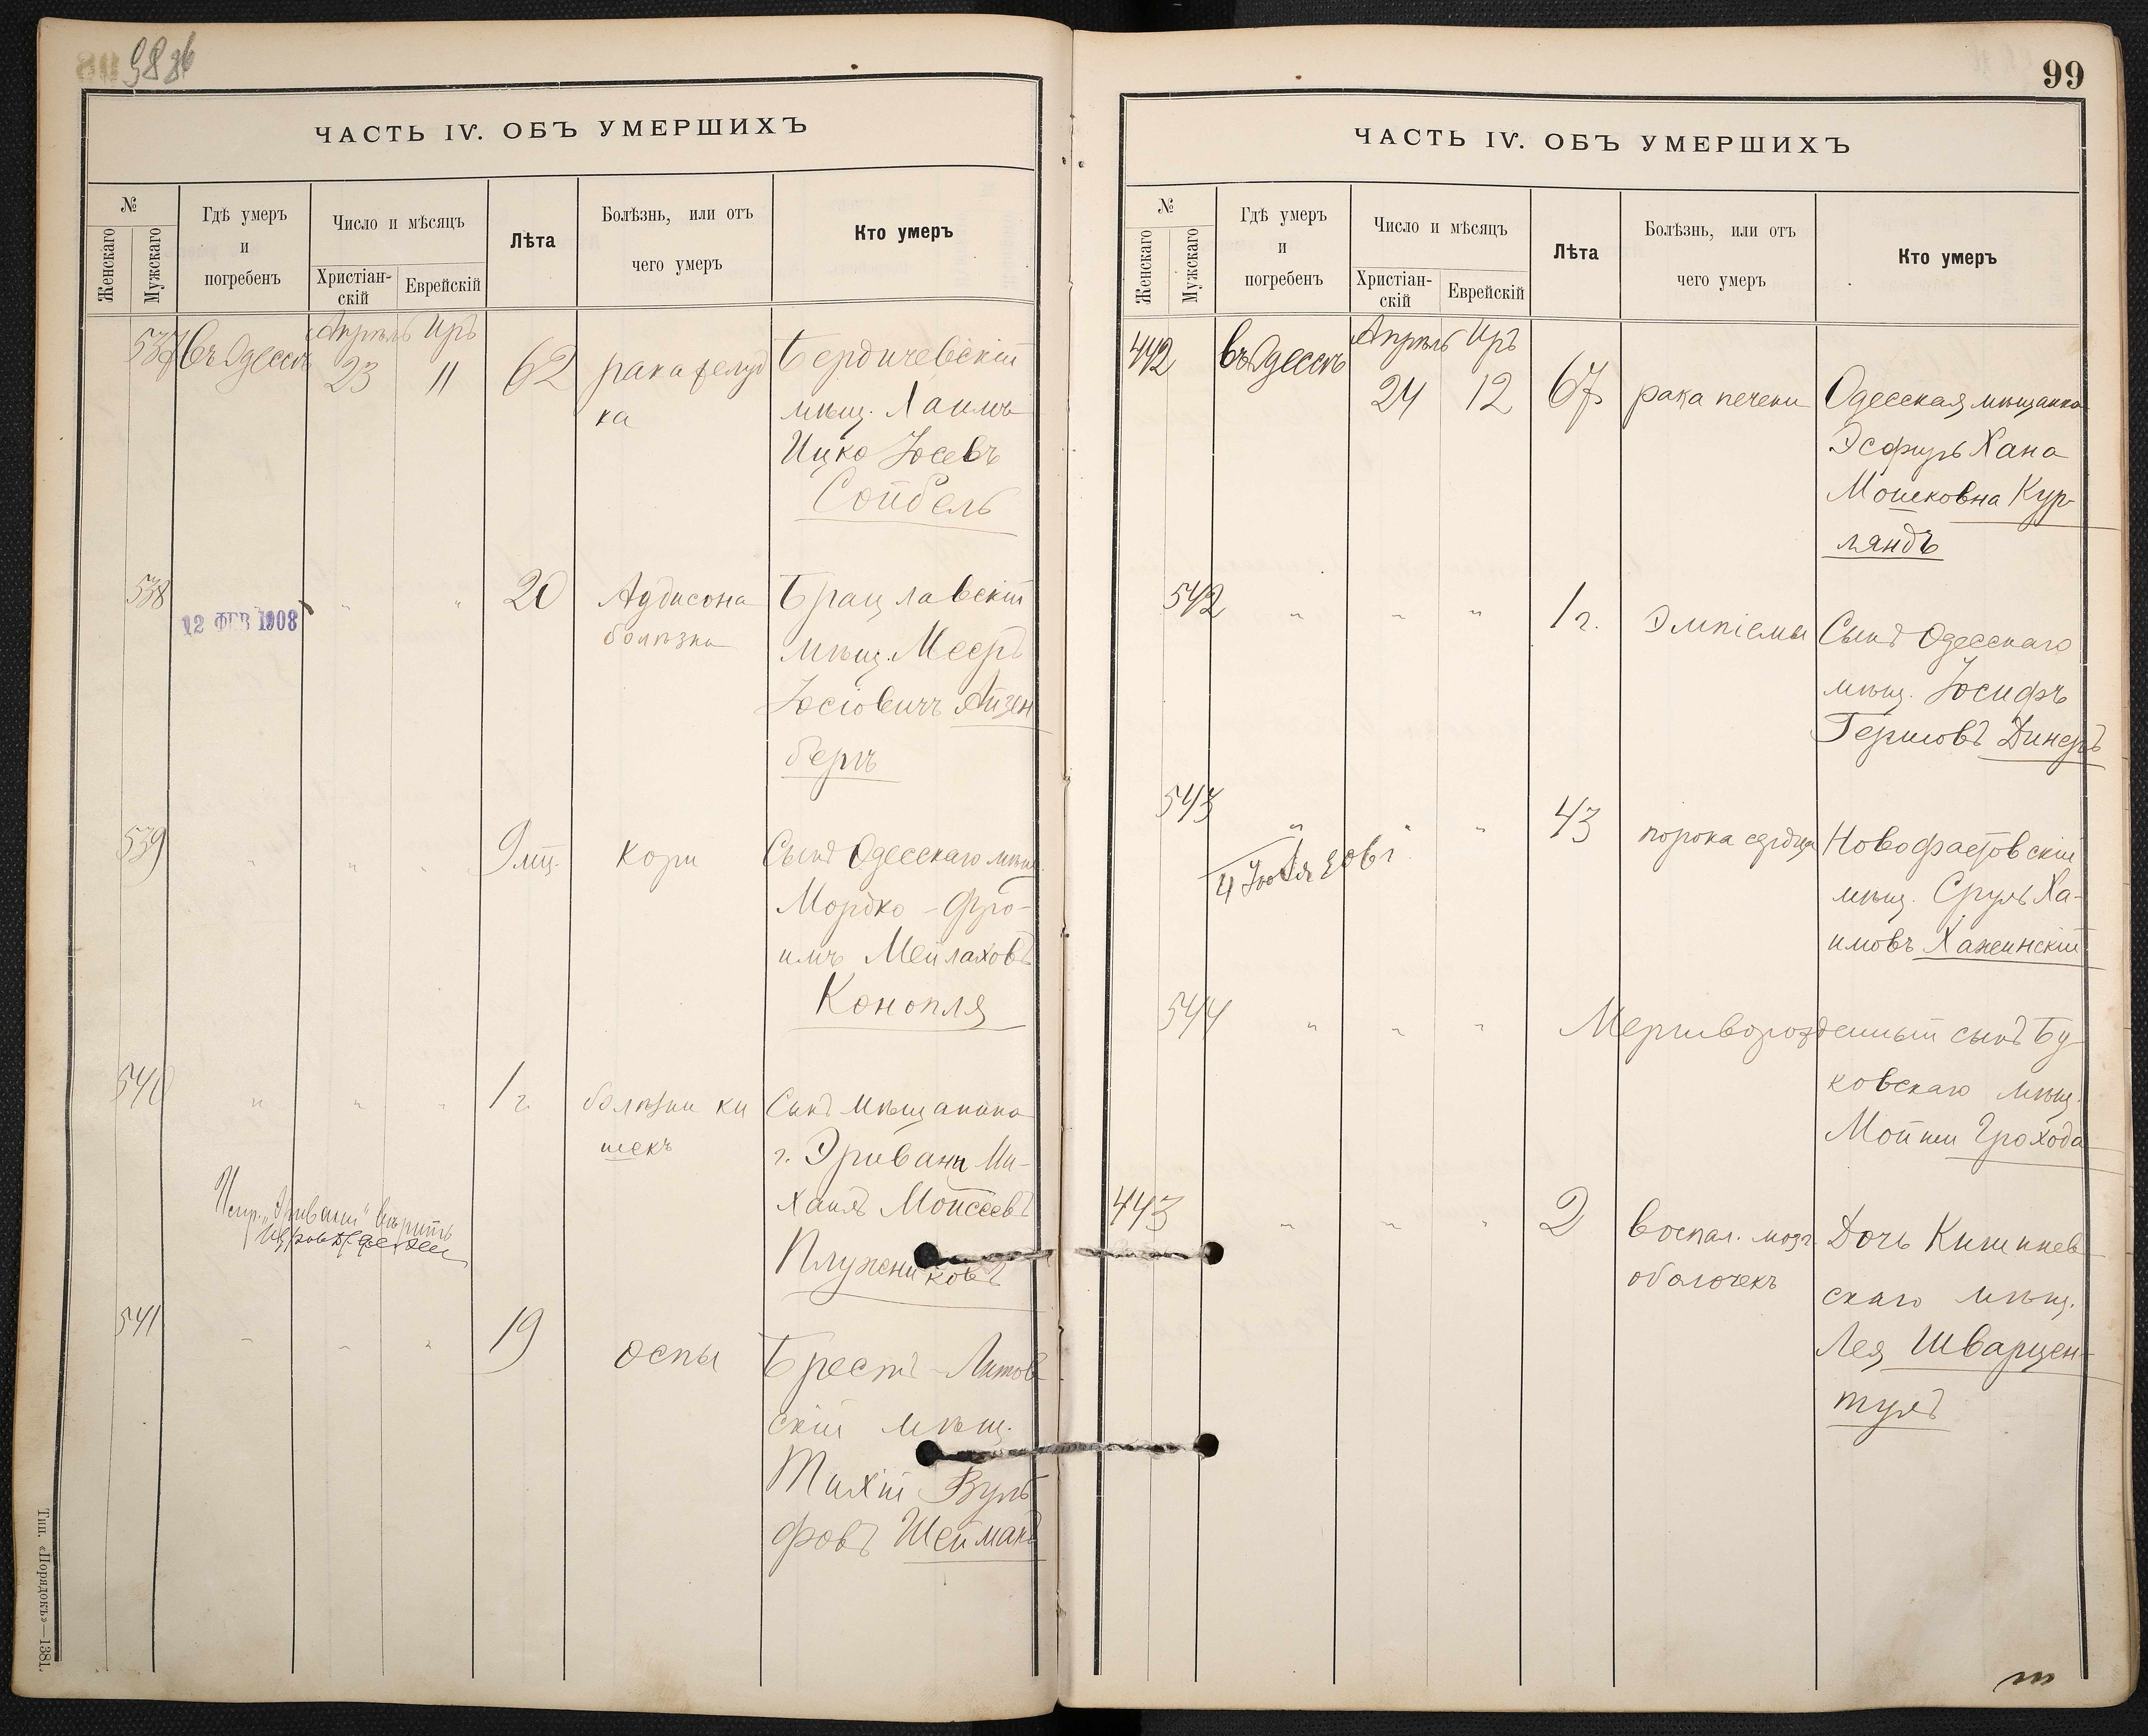 98 об
ЧАСТЬ IV. ОБЪ УМЕРШИХЪ
№
Женскаго
Мужскаго
Гдѣ умеръ
и
погребенъ
Число и мѣсяцъ
Христіан-
скій
Еврейскій
Лѣта
Болѣзнь, или отъ
чего умеръ
Кто умеръ
537 въ Одессѣ Апрѣль 23 Иръ 11 62 рака желуд
ка
Бердичевскій
мѣщ. Хаимъ
Ицко Іосевъ
Сойбель
538 12 ФЕВ 1908 " " 20 Аддисона
болѣзни
Брацлавскій
мѣщ. Мееръ
Іосіовичъ Айзен
бергъ
539 " " " 9 мц. кори
Сынъ Одесскаго мѣщ.
Мордко-Фро-
имъ Мейлаховъ
Конопля
540 " " " 1 г. болѣзни ки
шекъ
Сынъ мѣщанина
г. Эривани Ми-
хаилъ Моисеевъ
Плужниковъ
Испр. "Эривани" вѣрить
541 " " " 19 оспы
Брестъ-Литов
скій мѣщ.
Тихій Вуль
фовъ Шейманъ
Тип. «Порядокъ»—1381.
99
ЧАСТЬ IV. ОБЪ УМЕРШИХЪ
№
Женскаго
Мужскаго
Гдѣ умеръ
и
погребенъ
Число и мѣсяцъ
Христіан-
скій
Еврейскій
Лѣта
Болѣзнь, или отъ
чего умеръ
Кто умеръ
442 въ Одессѣ Апрѣль 24 Иръ 12 67 рака печени
Одесская мѣщанка
Эсфирь Хана
Мошковна Кур-
ляндъ
542 " " " 1 г. Эмпіемы
Сынъ Одесскаго
мѣщ. Іосифъ
Гершовъ Динеръ
543 " " " 43 порока сердца
Новофастовскій
мѣщ. Сруль Ха-
имовъ Хажинскій
544 " " " Мертворожденный сынъ Бу-
ковскаго мѣщ.
Мойши Грохода
443 " " " 2 воспал. мозг.
оболочекъ
Дочь Кишинев-
скаго мѣщ.
Лея Шварцен-
тулъ